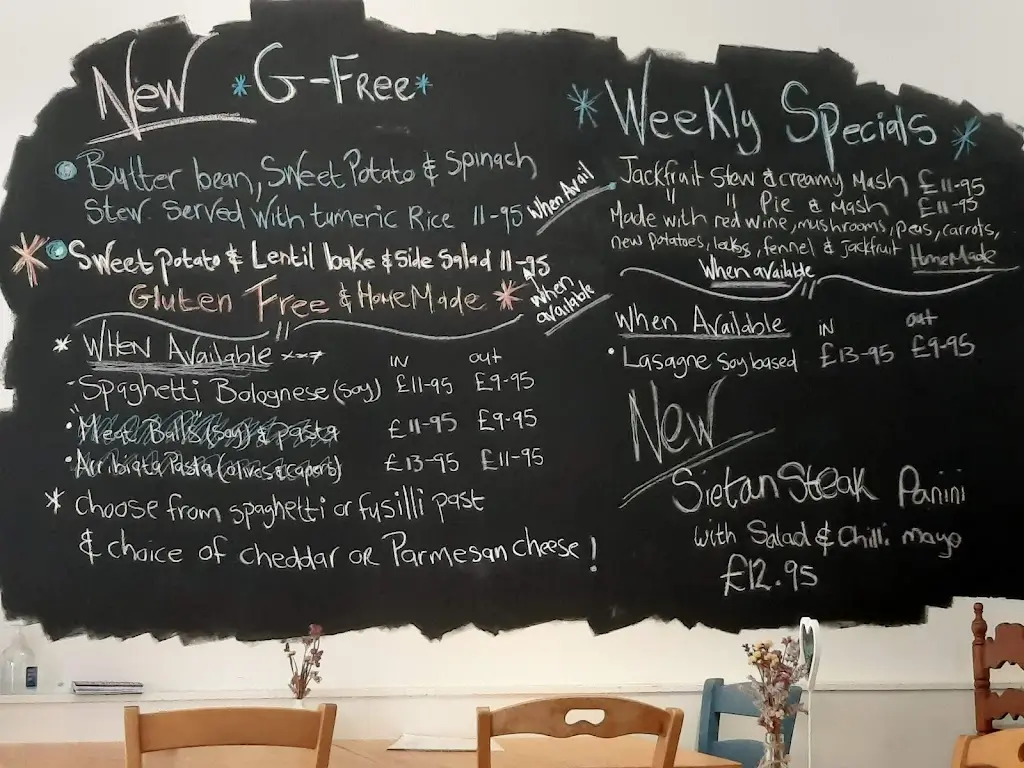 New *G-Free*
Butter bean, Sweet Potato & Spinach
Stew. Served with tumeric Rice 11-95 When Avail
* Sweet potato & Lentil bake & Side Salad 11-95
Gluten Free & HomeMade * When available
* WHEN Available
IN out
- Spaghetti Bolognese (Soy) £11-95 £9-95
• "Meat Balls" (soy) & pasta £11-95 £9-95
• Arribiata Pasta (olives & capers) £13-95 £11-95
* Choose from spaghetti or fusilli past
& choice of cheddar or Parmesan cheese!
* Weekly Specials *
Jackfruit Stew & creamy Mash £11-95
" " Pie & Mash £11-95
Made with red wine, mushrooms, peas, carrots,
new potatoes, leeks, fennel & jackfruit HomeMade
When available
When Available in out
• Lasagne Soy based £13-95 £9-95
New
Sietan Steak Panini
with Salad & Chilli mayo
£12.95